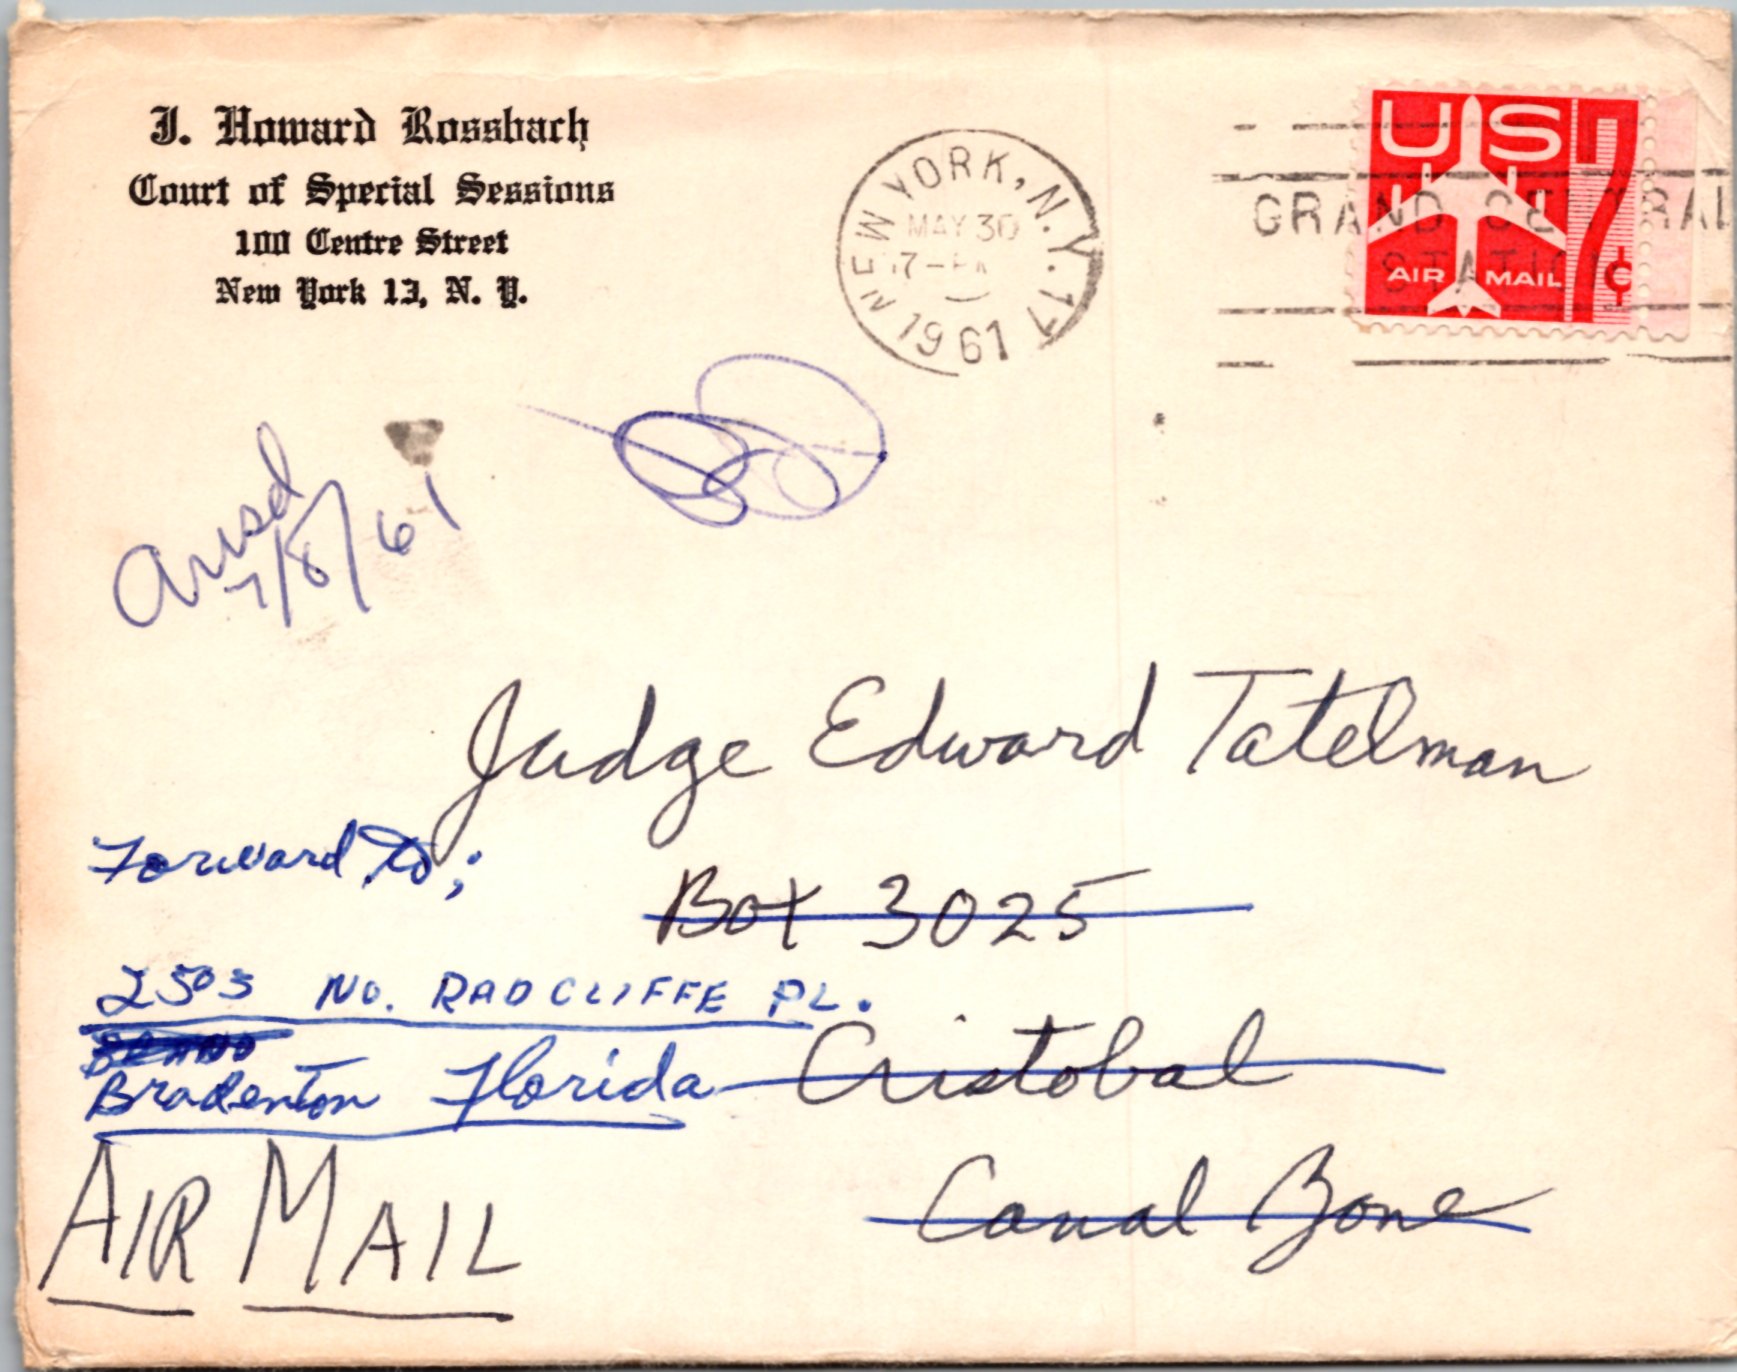 J. Howard Rossbach
Court of Special Sessions
100 Centre Street
New York 13, N. Y.
NEW YORK, N.Y. 17
MAY 30
7-PM
1961
GRAND CENTRAL
STATION
US
7¢
AIR MAIL
7/8/61
Judge Edward Tatelman
Forward to;
Box 3025
2503 NO. RADCLIFFE PL.
Cristobal
Bradenton Florida
Canal Zone
AIR MAIL